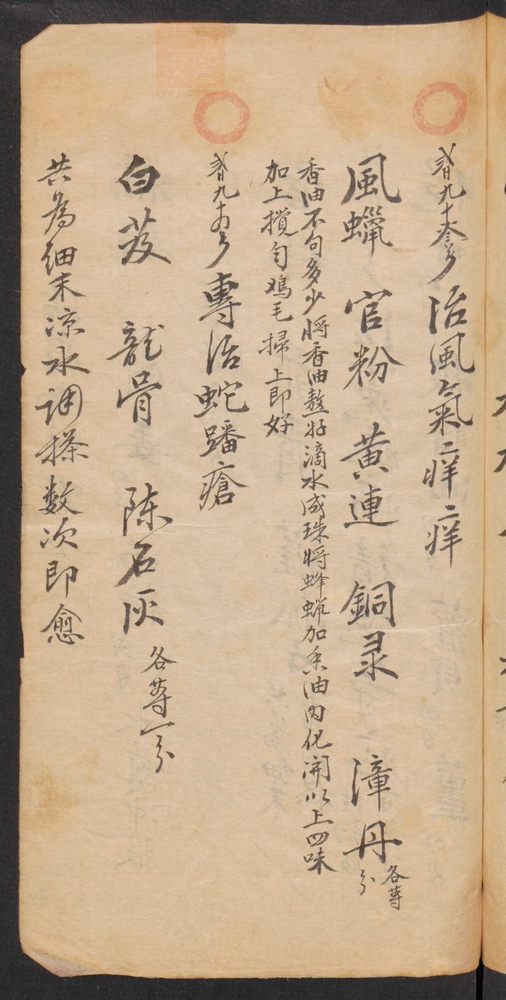 九十叁 治風氣痒痒
風蠟 官粉 黄連 銅录 漳丹 各等分
香油不句多少將香油熬好滴水成珠將蜂蜡加香油内化開以上四味
加上搅匀鸡毛掃上即好
九十 專治蛇蹯瘡
白芨 龍骨 陈石灰 各等一分
共為细末凉水调搽数次即愈